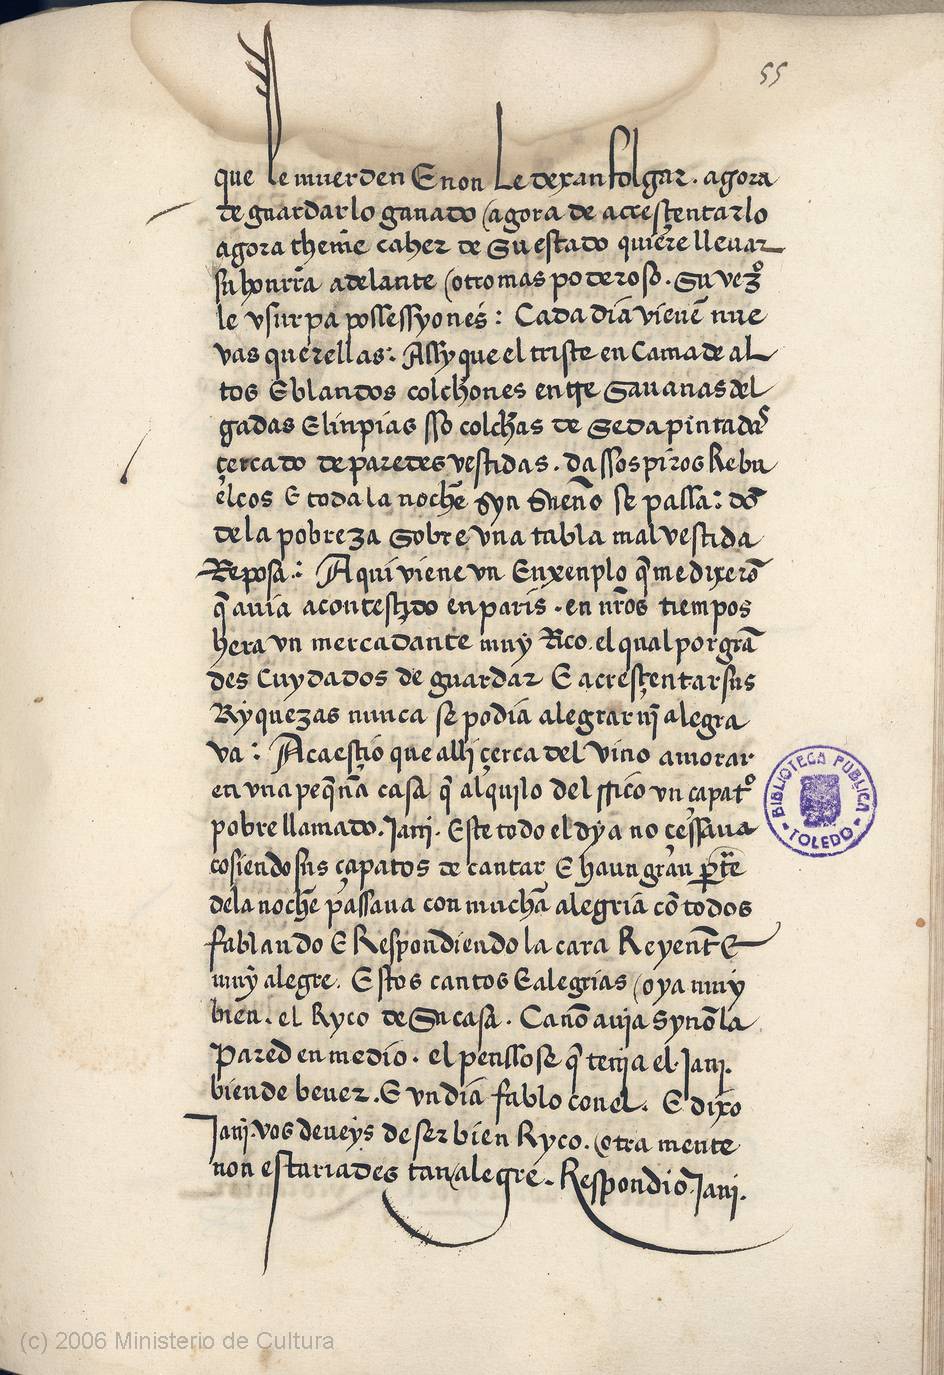 55
que le muerden E non Le dexan folgar . agora
de guardar lo ganado / agora de acresçentarlo
agora theme caher de Su estado quiere lleuar
su honrra adelante / otro mas poderoso . Su vezº
le vsurpa possessyones : Cada dia vienē nue
vas querellas : Assy que el triste en Cama de aL
tos E blandos colchones entre Sauanas del
gadas E linpias sso colchas de Seda pintadas
çercado de paredes vestidas . da ssospiros Rebu
elcos E toda la noche syn Sueño se passa : do
de la pobreza Sobre vna tabla mal vestida
Reposa : Aqui viene vn Enxenplo q̄ me dixerō
q̄ auia acontesçido en paris . en nr̄os tiempos
hera vn mercadante muy Rico . el qual por grā
des Cuydados de guardar E acresçentar sus
Ryquezas nunca se podia alegrar nj̄ alegra
va : Acaesçio que alli çerca del vino a morar
en vna peq̄ña casa q̄ alquilo del rrico vn çapatº
pobre llamado . Janj . Este todo el dya no çessaua
cosiendo sus çapatos de cantar E haun gran pr̄te
de la noche passaua con mucha alegria cō todos
fablando E Respondiendo la cara Reyentē E
muy alegre . Estos cantos E alegrias / oya muy
bien . el Ryco de Su casa . Ca nō auja Synō la
Pared en medio . el pensso se q̄ tenja el Janj .
bien de beuer . E vn dia fablo con el . E dixo
Janj . vos deueys de ser bien Ryco . / otra mente
non estariades tan / alegre . Respondio Janj .
BIBLIOTECA PUBLICA
TOLEDO
(c) 2006 Ministerio de Cultura